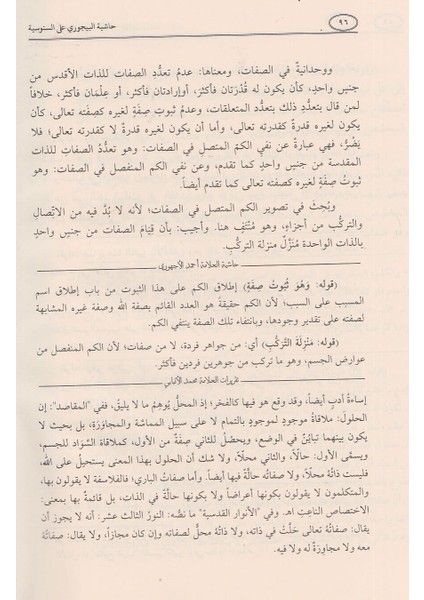 ٩٦
حاشية البيجوري على السنوسية
ووحدانيةٌ في الصفات، ومعناها: عدمُ تعدُّد الصفات للذات الأقدس من
جنسٍ واحدٍ، كأن يكون له قُدْرَتان فأكثرَ، أو إرادتان فأكثر، أو عِلْمان فأكثر، خلافاً
لمن قال بتعدُّد ذلك بتعدُّد المتعلقات، وعدمُ ثبوتِ صِفَةٍ لغيره كصِفَته تعالى، كأن
يكون لغيره قدرةٌ كقدرته تعالى، وأما أن يكون لغيره قدرةٌ لا كقدرته تعالى؛ فلا
يَضُرُّ، فهي عبارةٌ عن نفي الكمّ المتصل في الصفات: وهو تعدُّدُ الصفاتِ للذات
المقدسة من جنسٍ واحد كما تقدم، وعن نفي الكم المنفصل في الصفات: وهو
ثبوتُ صِفَةٍ لغيره كصفته تعالى كما تقدم أيضاً.
وبُحِثَ في تصوير الكم المتصل في الصفات؛ لأنه لا بُدَّ فيه من الاتّصالِ
والتركُّبِ من أجزاءٍ، وهو مُنْتَفٍ هنا. وأجيب: بأن قيَامَ الصفات من جنسٍ واحدٍ
بالذات الواحدة مُنَزَّلٌ منزلةَ التركُّبِ.
حاشية العلامة أحمد الأجهوري
(قوله: وَهُوَ ثُبُوتُ صِفَةٍ) إطلاق الكم على هذا الثبوت من باب إطلاق اسم
المسبب على السبب؛ لأن الكم حقيقةً هو العدد القائم بصفة الله وصفة غيره المشابهة
لصفته على تقدير وجودها، وبانتفاء تلك الصفة ينتفي الكم.
(قوله: مَنْزِلَةَ التَّرَكُّبِ) أي: من جواهر فردة، لا من صفات؛ لأن الكم المنفصل من
عوارض الجسم، وهو ما تركب من جوهرين فردين فأكثر.
تقريرات العلامة محمد الأنبابي
إساءةُ أدبٍ أيضاً، وقد وقع هو فيها كالفخر؛ إذ المحلُّ يُوهِمُ ما لا يليقُ، ففي "المقاصد": إن
الحلولَ: ملاقاةُ موجودٍ لموجودٍ بالتمام لا على سبيل المماسَّة والمجاوَرَة، بل بحيث لا
يكون بينهما تبايُنٌ في الوضع، ويحصُلُ للثاني صِفَةٌ من الأول، كملاقاة السَّوَاد للجسم،
ويسمَّى الأول: حالّاً، والثاني محلّاً، ولا شك أن الحلول بهذا المعنى يستحيلُ على الله،
فليست ذاتُه محلّاً، ولا صفاتُه حالَّةً فيها أيضاً. وأما صفاتُ الباري؛ فالفلاسفة لا يقولون بها،
والمتكلمون لا يقولون بكونها أعراضاً ولا بكونها حالَّةً في الذات، بل قائمةً بها بمعنى:
الاختصاص الناعِتِ اهـ. وفي "الأنوار القدسية" ما نصُّه: النورُ الثالث عشر: أنه لا يجوز أن
يقال: صفاتُهُ تعالى حَلَّتْ في ذاته، ولا ذاتُهُ محلٌّ لصفاته وإن كان مجازاً، ولا يقال: صفاتُهُ
معه ولا مجاوِرَةٌ له ولا فيه.